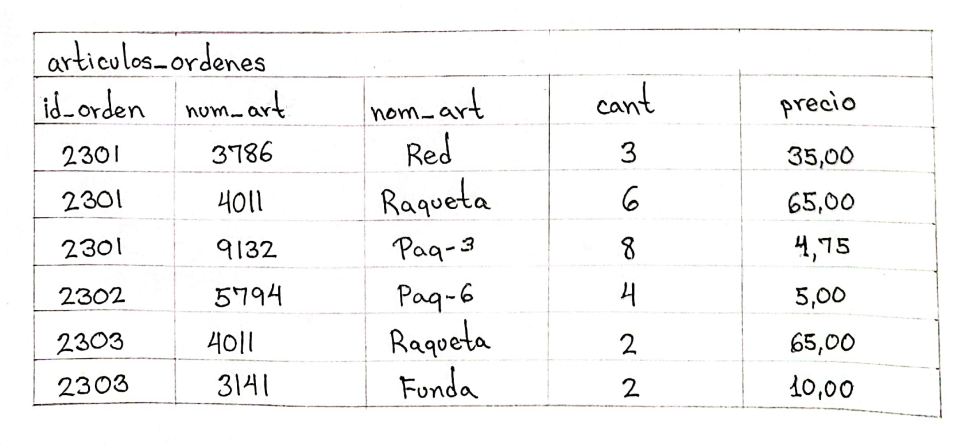 articulos_ordenes
id_orden num_art nom_art cant precio
2301 3786 Red 3 35,00
2301 4011 Raqueta 6 65,00
2301 9132 Paq-3 8 4,75
2302 5794 Paq-6 4 5,00
2303 4011 Raqueta 2 65,00
2303 3141 Funda 2 10,00